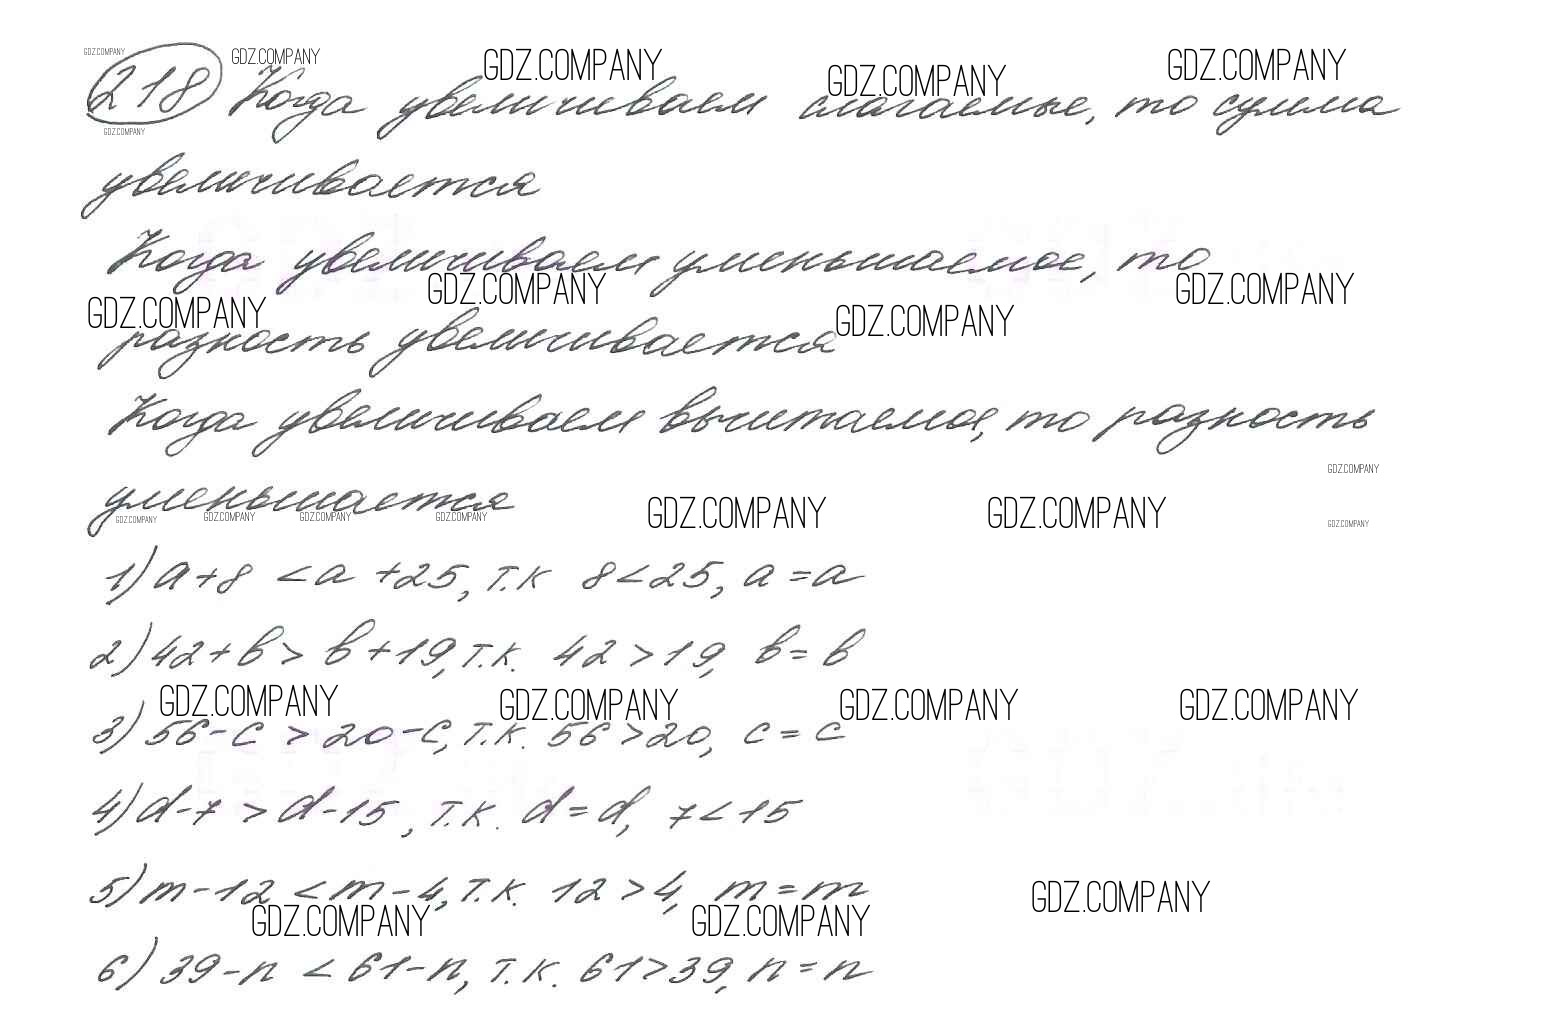 GDZ.COMPANY GDZ.COMPANY GDZ.COMPANY GDZ.COMPANY GDZ.COMPANY
218 Когда увеличиваем слагаемые, то сумма
GDZ.COMPANY
увеличивается
Когда увеличиваем уменьшаемое, то
GDZ.COMPANY GDZ.COMPANY GDZ.COMPANY GDZ.COMPANY
разность увеличивается
Когда увеличиваем вычитаемое, то разность
GDZ.COMPANY
уменьшается
GDZ.COMPANY GDZ.COMPANY GDZ.COMPANY GDZ.COMPANY GDZ.COMPANY GDZ.COMPANY GDZ.COMPANY
1) a+8 < a +25, т.к 8<25, a=a
2) 42+b > b+19, т.к. 42>19, b=b
GDZ.COMPANY GDZ.COMPANY GDZ.COMPANY GDZ.COMPANY
3) 56-c > 20-c, т.к. 56>20, c=c
4) d-7 > d-15, т.к. d=d, 7<15
5) m-12 < m-4, т.к. 12>4, m=m
GDZ.COMPANY GDZ.COMPANY GDZ.COMPANY
6) 39-n < 61-n, т.к. 61>39, n=n